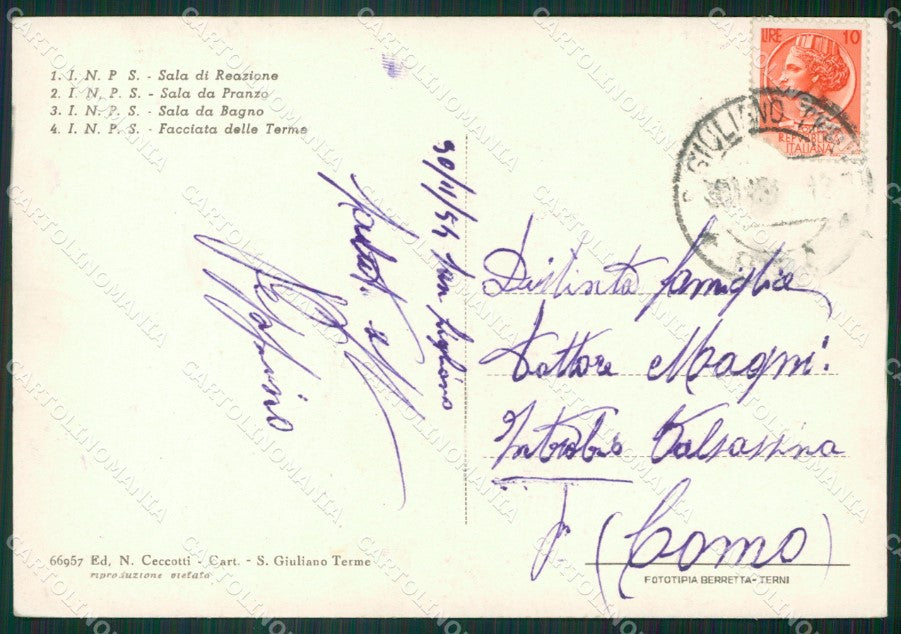 1. I. N. P. S. - Sala di Reazione
2. I. N. P. S. - Sala da Pranzo
3. I. N. P. S. - Sala da Bagno
4. I. N. P. S. - Facciata delle Terme
LIRE 10
REPUBBLICA
ITALIANA
S. GIULIANO TERME
PISA
30/11/54 San Giuliano
Distinta famiglia
Dottore Magni
Introbio Valsassina
(Como)
66957 Ed. N. Ceccotti - Cart. - S. Giuliano Terme
riproduzione vietata
FOTOTIPIA BERRETTA - TERNI
CARTOLINOMANIA